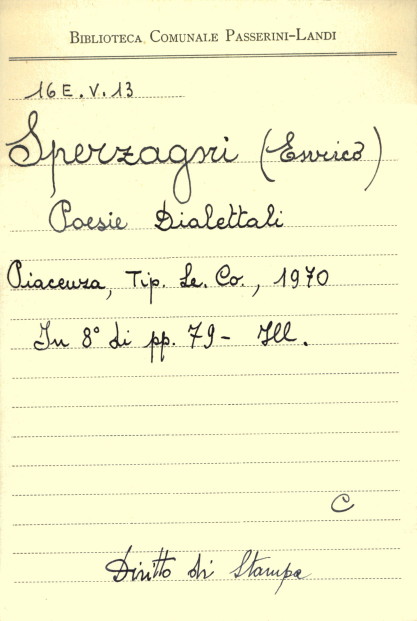 BIBLIOTECA COMUNALE PASSERINI-LANDI
16 E. V. 13
Sperzagni (Enrico)
Poesie Dialettali
Piacenza, Tip. Le. Co., 1970
In 8° di pp. 79 - Ill.
C
Diritto di Stampa